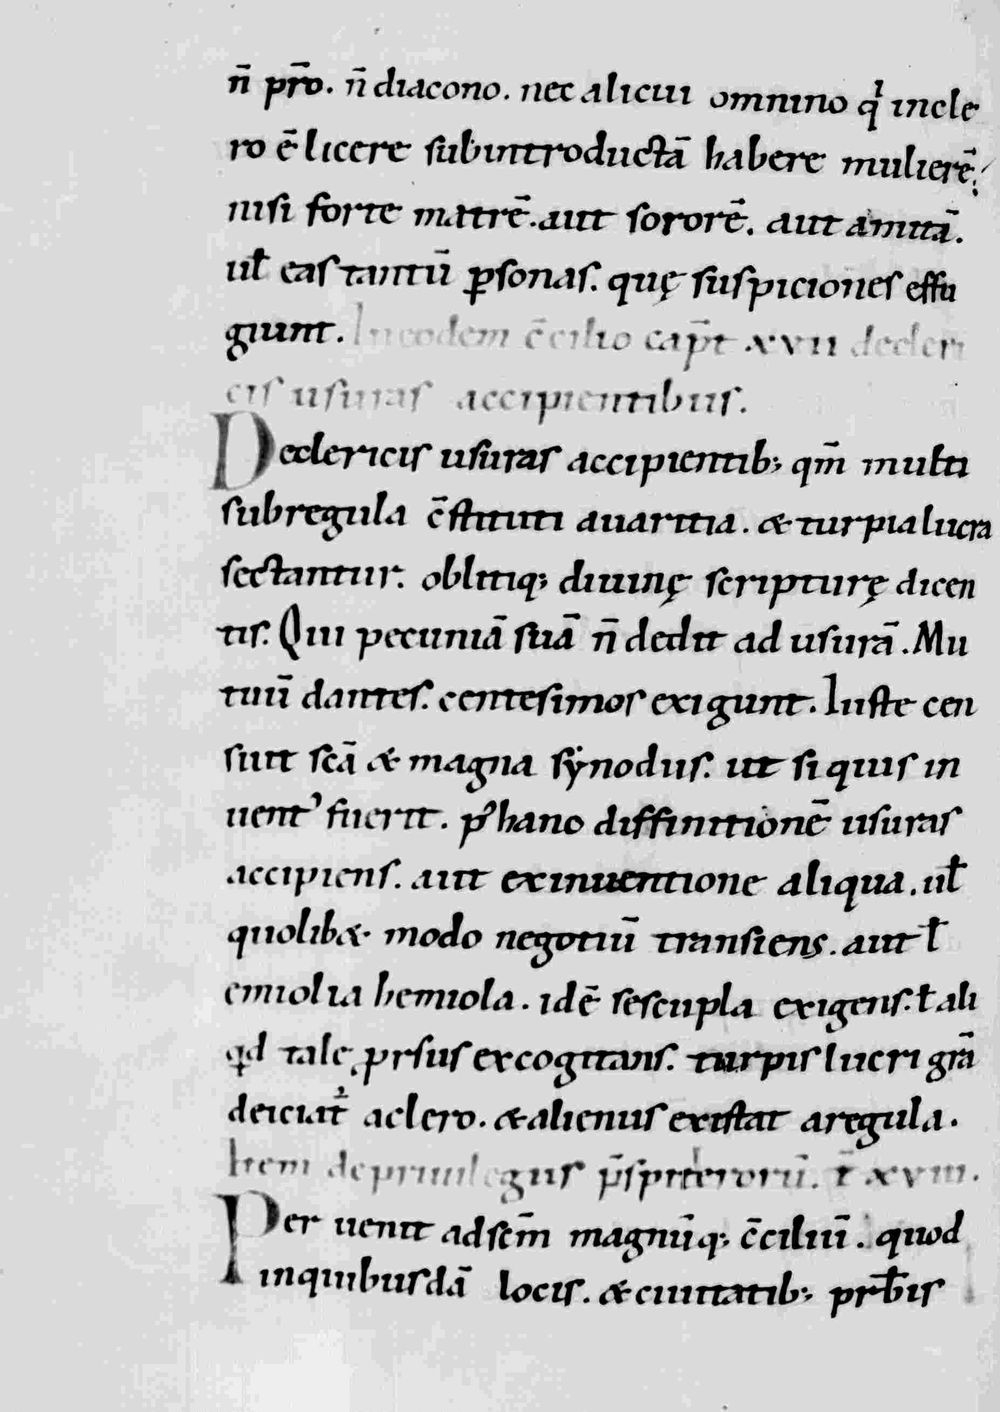 n̄ pr̄o. n̄ diacono. nec alicui omnino qͥ incle
ro ē licere subintroductā habere mulierē;
nisi forte matrē. aut sororē. aut amitā.
ul̄ eas tantū ꝑsonas. quę suspiciones effu
giunt. In eodem c̄cilio cap̄t xvii decleri
cis usuras accipientibus.
Declericis usuras accipientib; qm̄ multi
subregula c̄stituti auaritia. & turpia lucra
sectantur. oblitiq; diuinę scripturę dicen
tis. Qui pecuniā suā n̄ dedit ad usurā. Mu
tuū dantes. centesimos exigunt. Iuste cen
suit sc̄a & magna sẏnodus. ut siquis in
uent᾽ fuerit. p᾽ hanc diffinitionē usuras
accipiens. aut exinuentione aliqua. ul̄
quolib& modo negotiū transiens. aut ł
emiolia hemiola. idē sescupla exigens. ł ali
qd tale ꝓrsus excogitans. turpis lucri grā
deiciat᷑ aclero. & alienus existat aregula.
Item depriuilegiis p̄spiterorū. t̄ xviii.
Per uenit adscm̄ magnūq; c̄ciliū. quod
inquibusdā locis. & ciuitatib; prb̄is